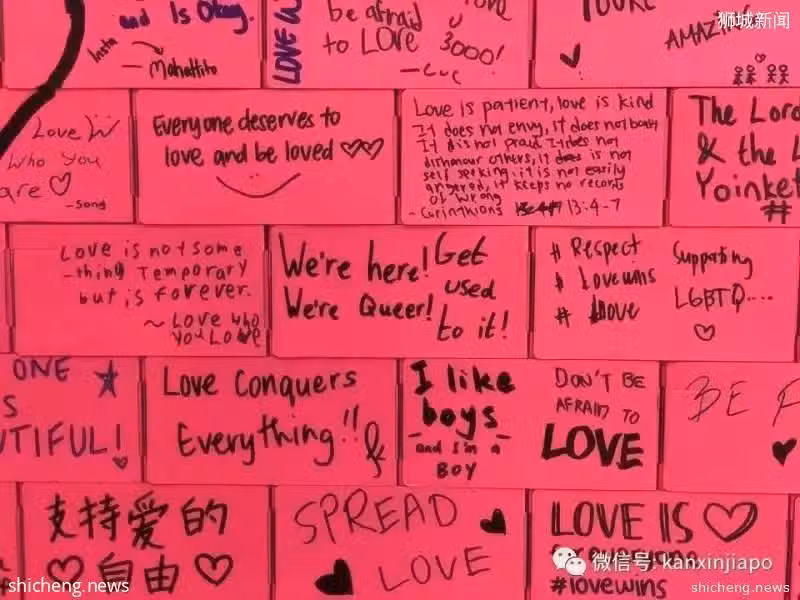 and Is Okay.
Insta
- Mahattito
LOVE
be afraid
to LOVE 3000!
YOU'RE
AMAZIN
狮城新闻
Love
who you
are ♡
- Song
Everyone deserves to
love and be loved ♡♡
Love is patient, love is kind
It does not envy, it does not boast
It is not proud It does not
dishonour others, it is not
self seeking, it is not easily
angered, it keeps no records
of wrong
- Corinthians 13:4-7
The Lord
& the L
Yoinket
#
Love is not some
-thing Temporary
but is forever.
~ Love who
you Love
We're here!
We're Queer!
Get
used
to it!
# Respect
# Lovewins
# Love
Supporting
LGBTQ....
♡
ONE
S
UTIFUL!
Love Conquers
Everything!!
I like
boys
- and I'm a -
BOY
DON'T BE
AFRAID TO
LOVE
BE
支持爱的
♡自由♡
SPREAD
LOVE
LOVE IS ♡
#lovewins
微信号: kanxinjiapo
shicheng.news
shicheng.news